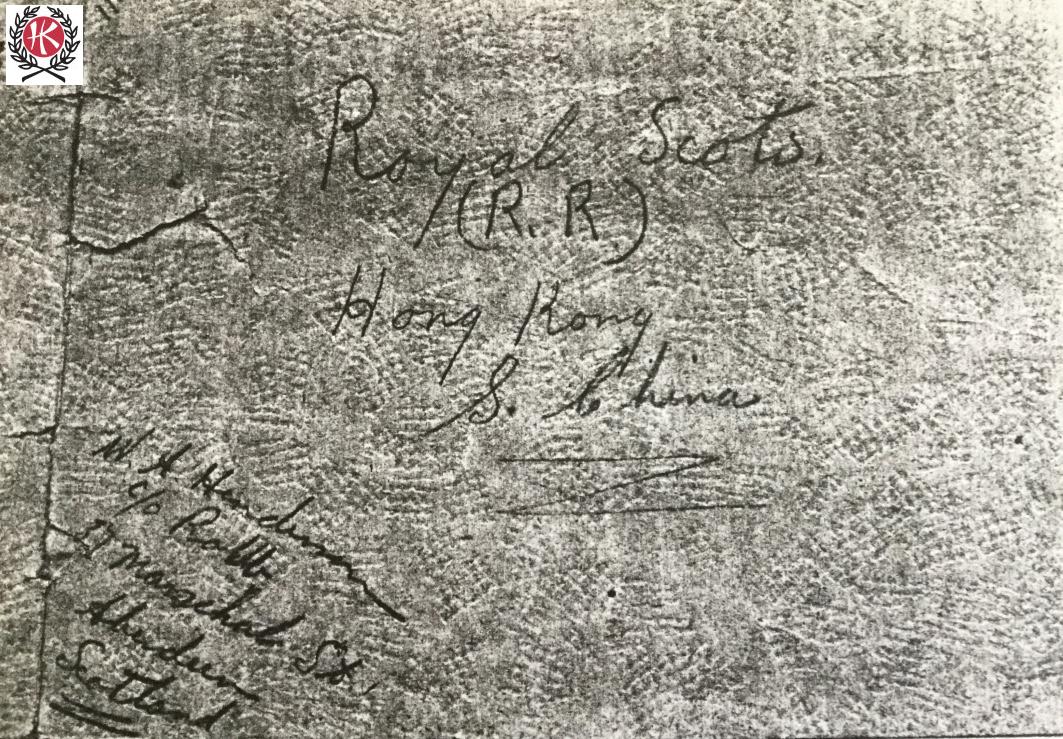 HK
Royal Scots.
(R.R)
Hong Kong
S. China
W A Henderson
c/o Rabb
Marischal St.
Aberdeen
Scotland